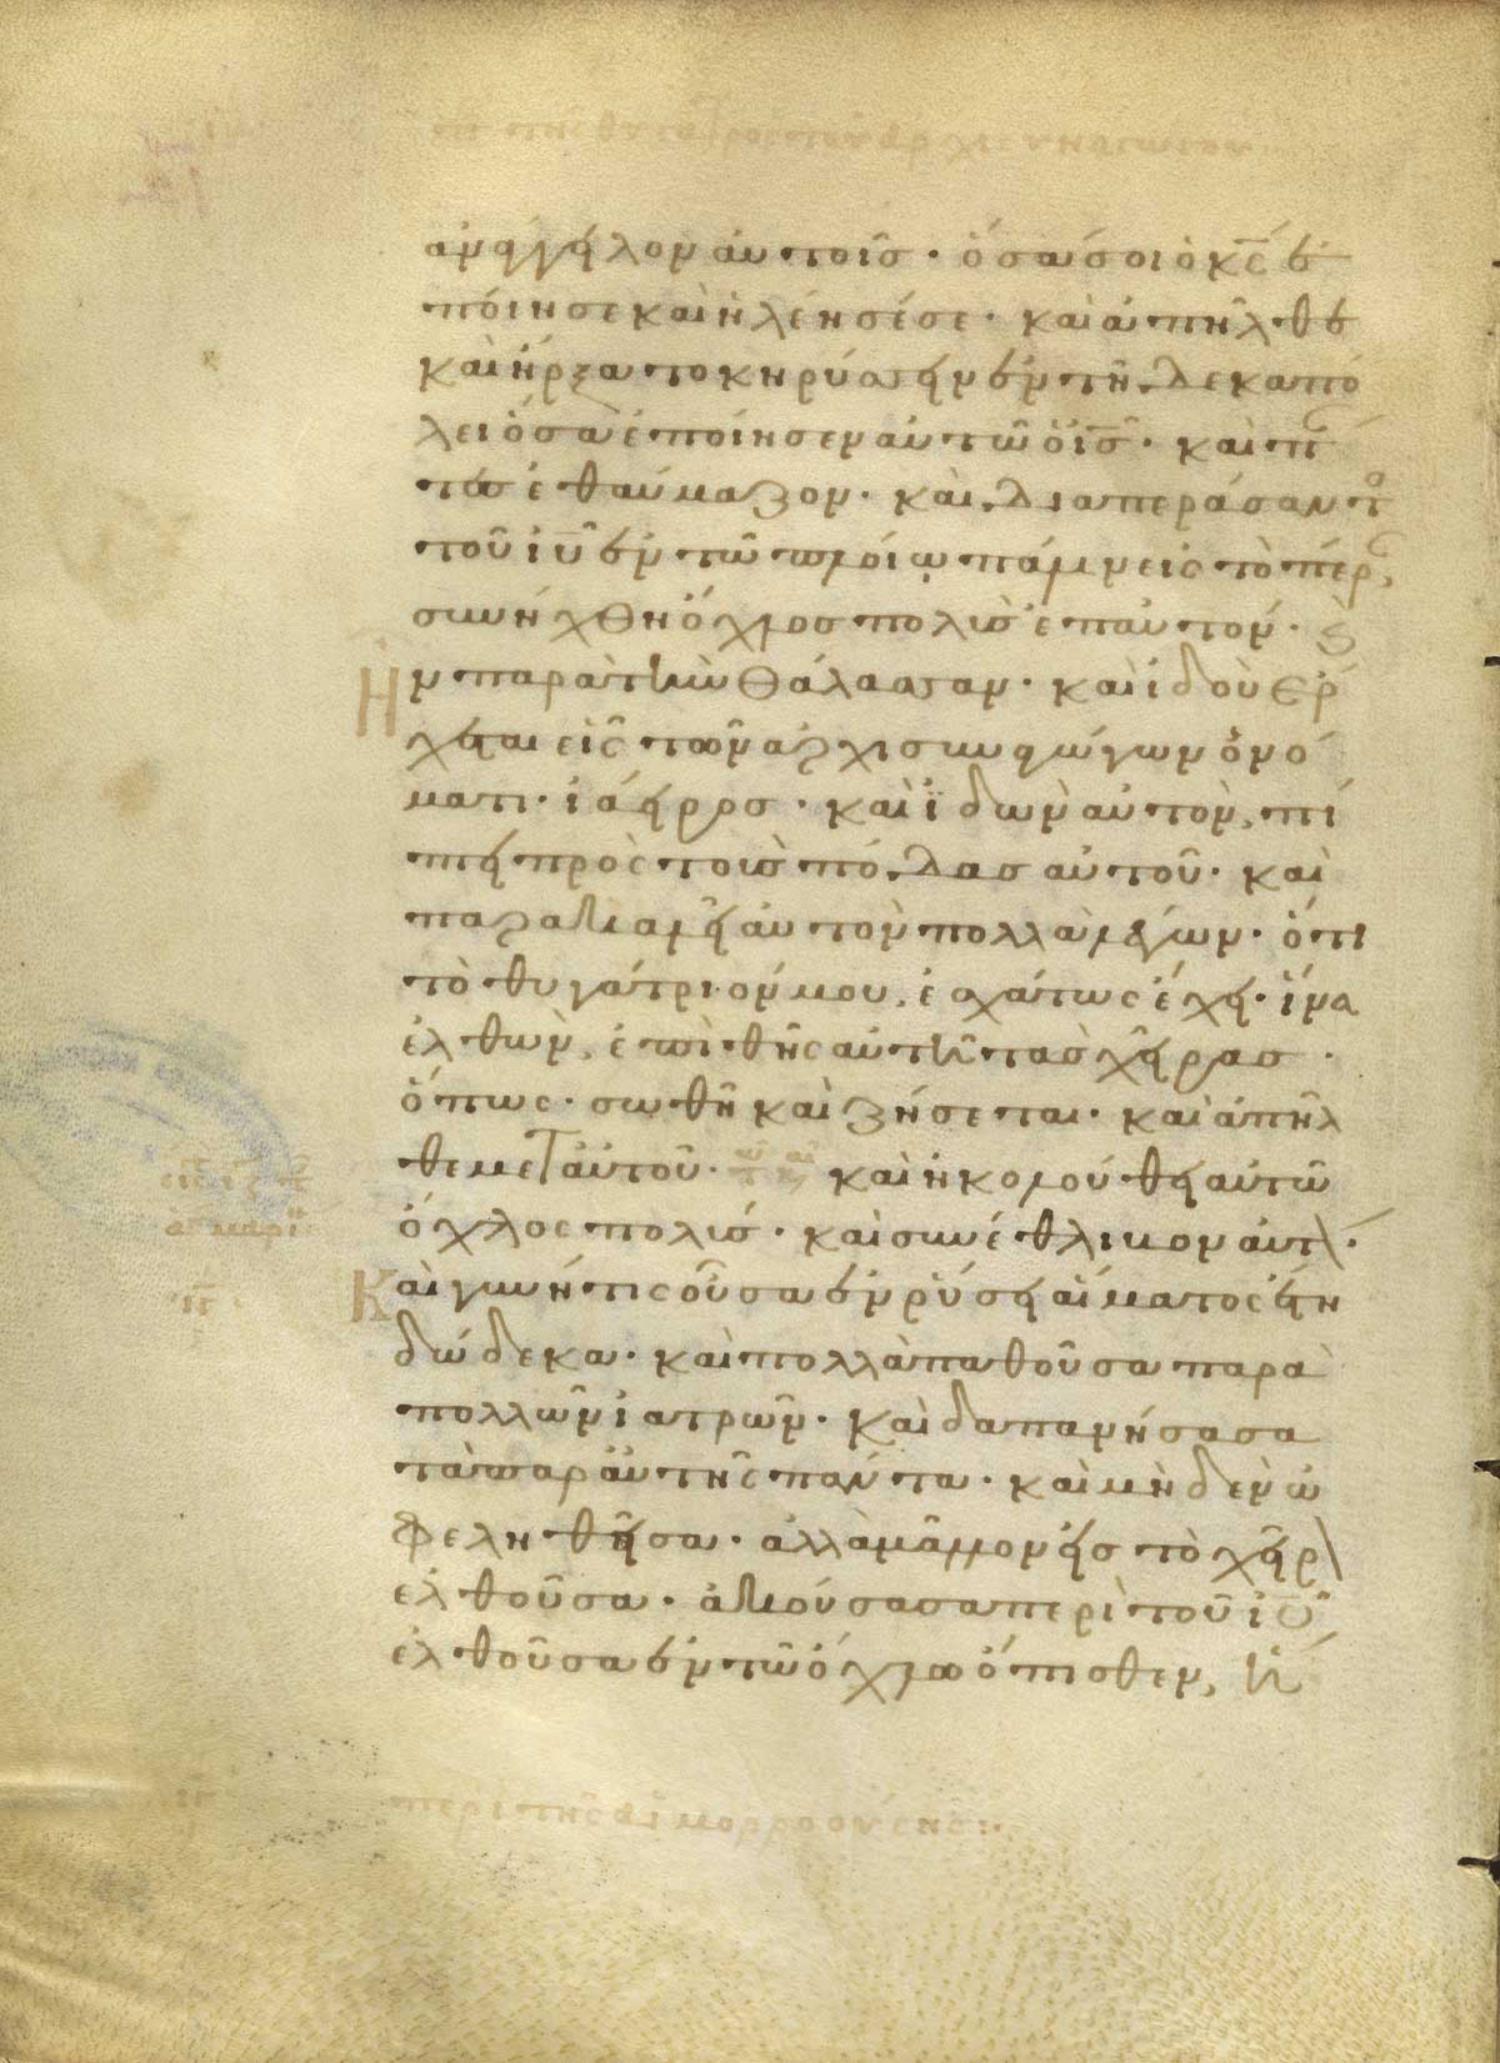 τῆς θυγατρὸς τοῦ ἀρχισυναγώγου
ἀνάγγειλον αὐτοῖς· ὅσα σοι ὁ κ̅ς̅ ἐ
ποίησε καὶ ἠλέησέ σε· καὶ ἀπῆλθε
καὶ ἤρξατο κηρύσσειν ἐν τῆ δεκαπό
λει ὅσα ἐποίησεν αὐτῶ ὁ ι̅ς̅· καὶ πάν
τες ἐθαύμαζον· καὶ διαπεράσαντο
τοῦ ι̅υ̅ ἐν τῶ πλοίω πάλιν εἰς τὸ πέρ
συνήχθη ὄχλος πολὺς ἐπ αὐτόν· ϗ
ῆν παρὰ τὴν θάλασσαν· καὶ ἰδοὺ ἔρ
χεται εἷς τῶν ἀρχισυναγώγων ὀνό
ματι· ἰάειρος· καὶ ἰδὼν αὐτὸν, πί
πτει πρὸς τοὺς πόδας αὐτοῦ· καὶ
παρακαλεῖ αὐτὸν πολλὰ λέγων· ὅτι
τὸ θυγάτριόν μου, ἐσχάτως ἔχει· ἵνα
ἐλθὼν, ἐπιθῆς αὐτῆ τὰς χεῖρας·
ὅπως· σωθῆ καὶ ζήσεται· καὶ ἀπῆλ
θε μετ αὐτοῦ· καὶ ἠκολούθει αὐτῶ
ὄχλος πολύς· καὶ συνέθλιβον αὐτ·
Καὶ γυνή τις οὖσα ἐν ῥύσει αἵματος ἔτη
δώδεκα· καὶ πολλὰ παθοῦσα παρὰ
πολλῶν ἰατρῶν· καὶ δαπανήσασα
τὰ παρ αὐτῆς πάντα· καὶ μηδὲν ὠ
φεληθεῖσα· ἀλλὰ μᾶλλον εἰς τὸ χεῖρ
ἐλθοῦσα· ἀκούσασα περὶ τοῦ ι̅υ̅
ἐλθοῦσα ἐν τῶ ὄχλω ὄπισθεν, ἥ
περὶ τῆς αἱμορροούσης·